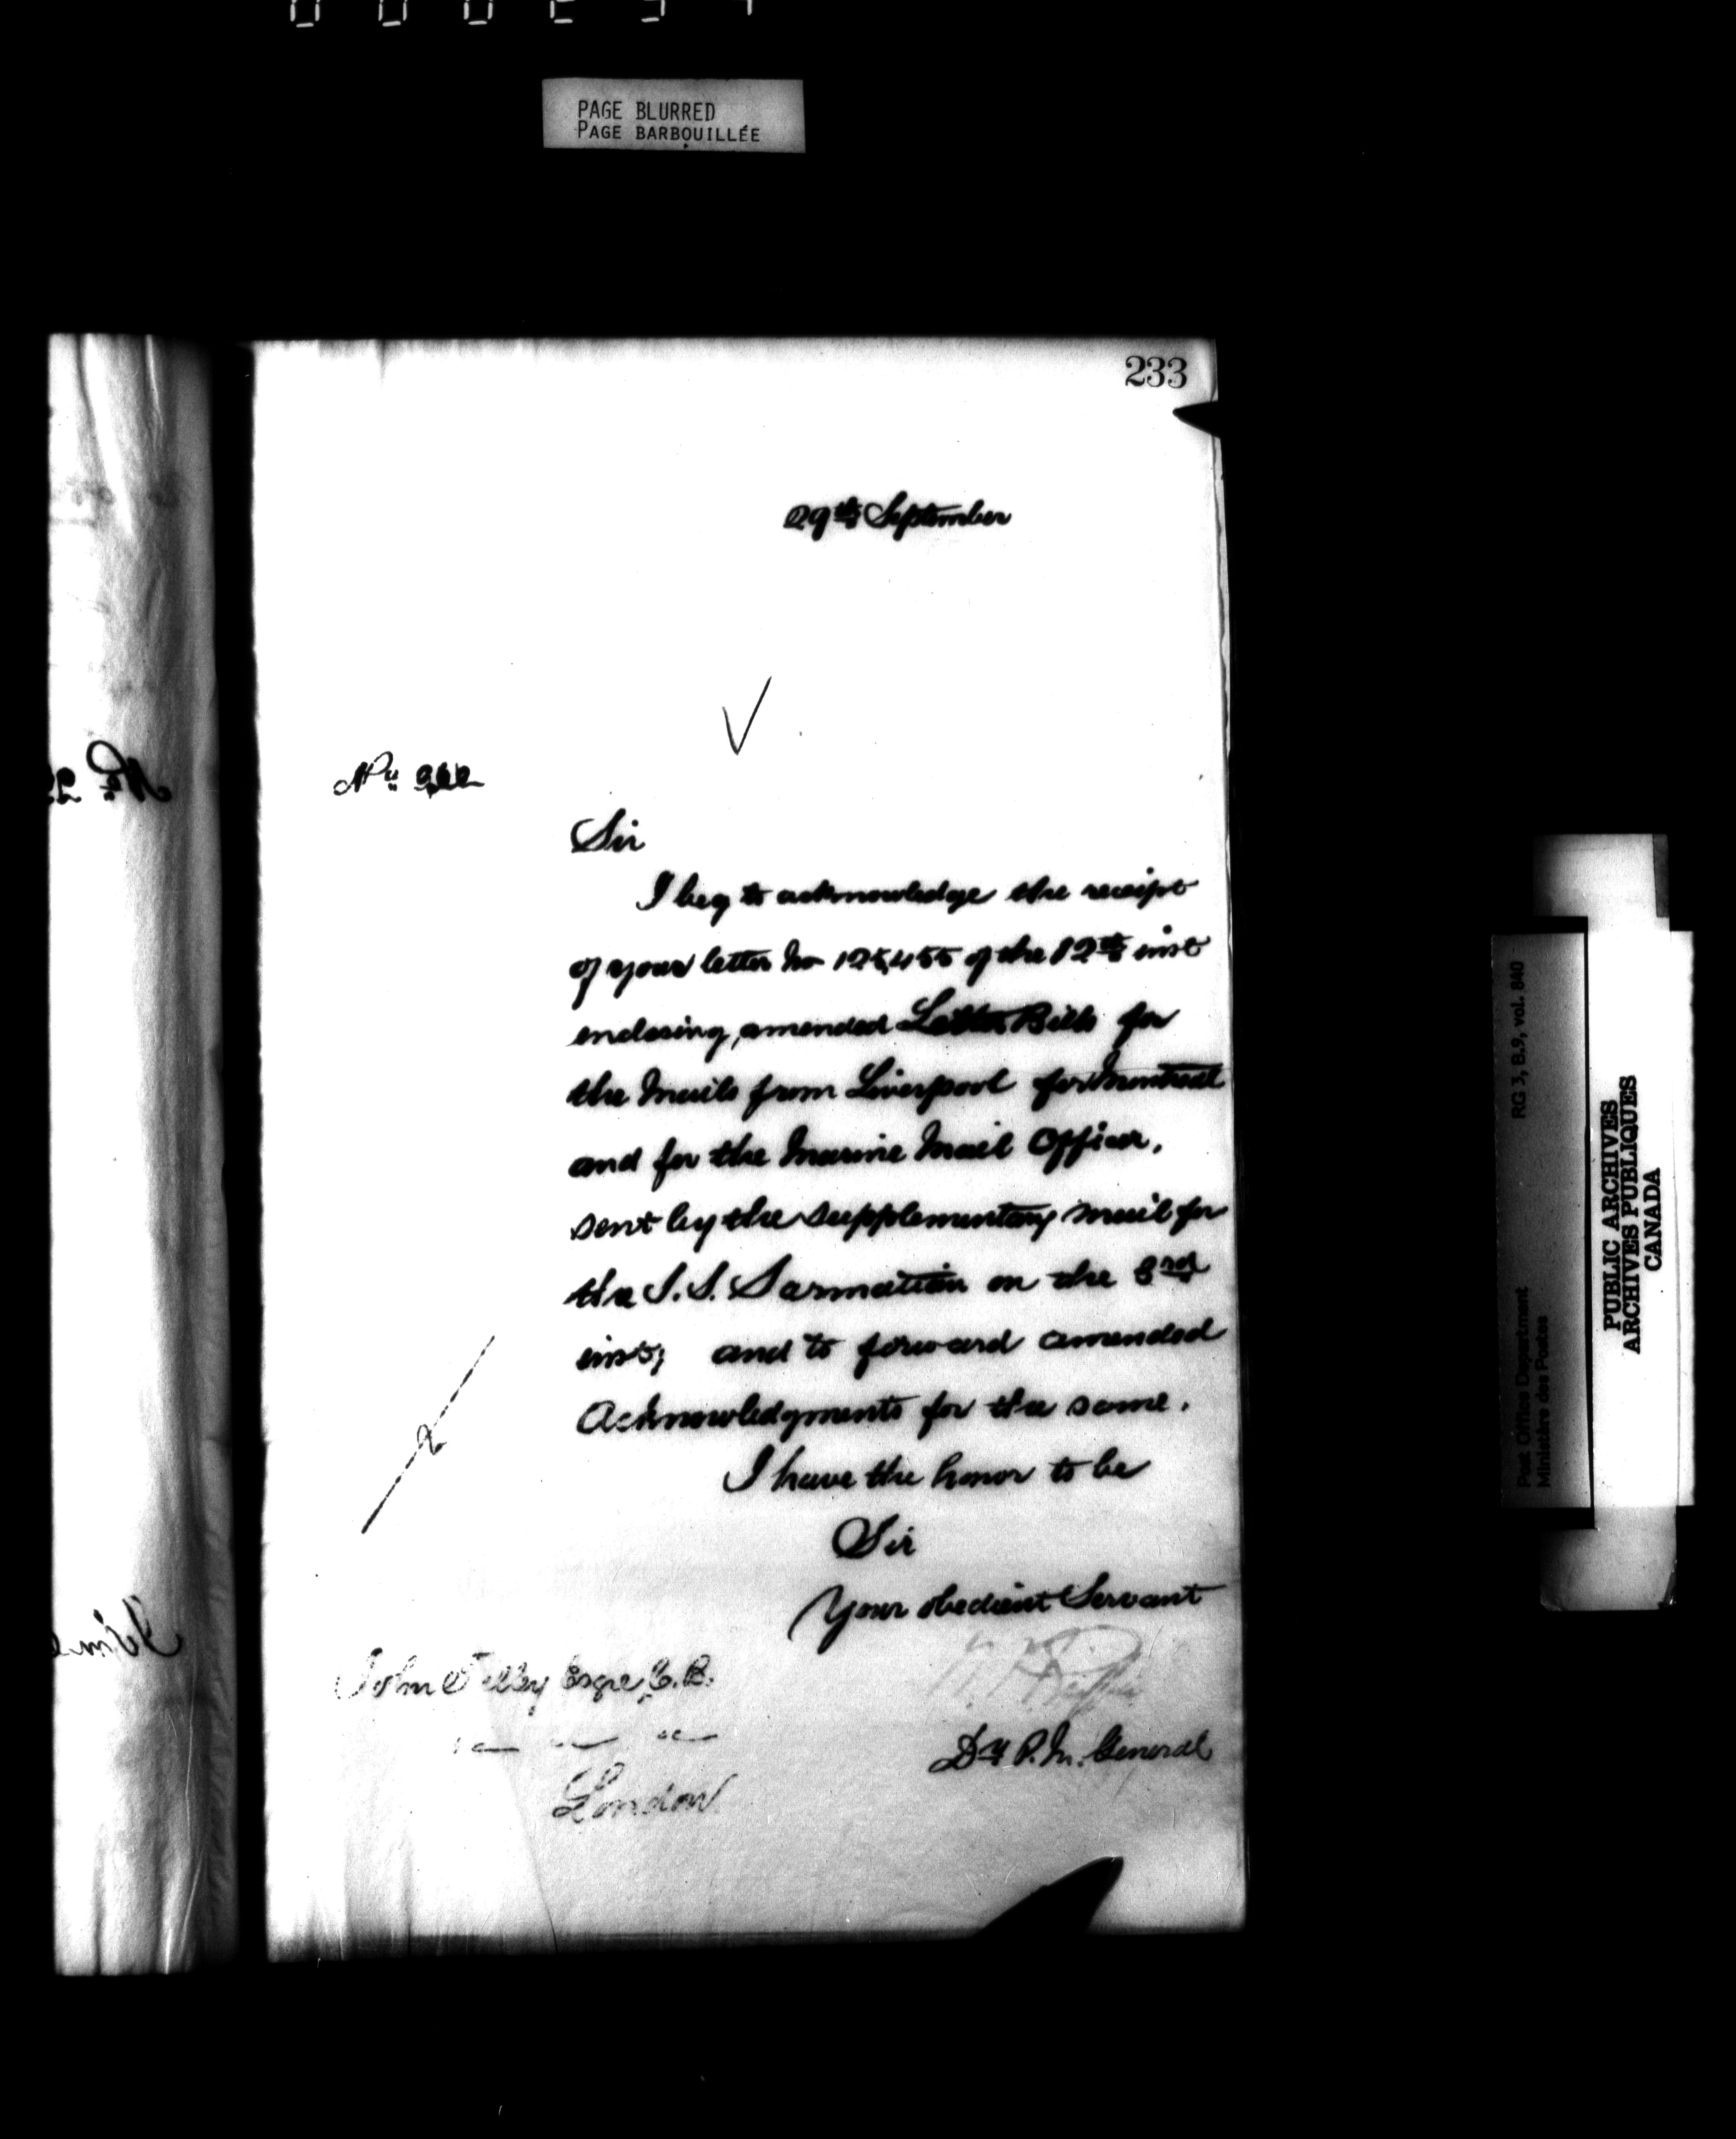 PAGE BLURRED
PAGE BARBOUILLÉE
233
29th September
No
Sir
I beg to acknowledge the receipt
of your letter No 125,455 of the 12th inst
enclosing, amended Letter Bills for
the Mails from Liverpool for Montreal
and for the Marine Mail Officer,
sent by the supplementary mail for
the S.S. Sarmatian on the 3rd
inst; and to forward amended
Acknowledgments for the same.
I have the honor to be
Sir
Your obedient Servant
John Tilley Esqre C.B.
London
Dy P.M. General
RG 3, B.9, vol. 840
Post Office Department
Ministère des Postes
PUBLIC ARCHIVES
ARCHIVES PUBLIQUES
CANADA